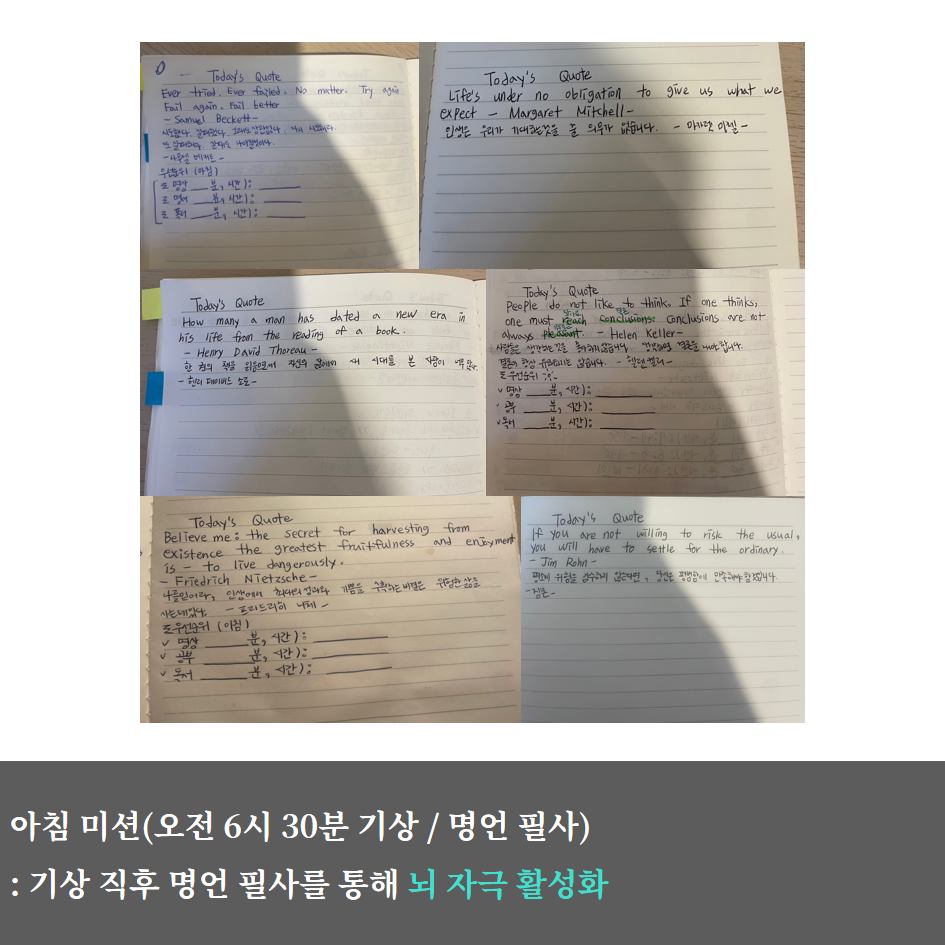 Today's Quote
Ever tried. Ever failed. No matter. Try again
Fail again. Fail better
- Samuel Beckett -
시도했다. 실패했다. 다시 시도하라.
또 실패하라.
- 사무엘 베케트 -
우선순위 (아침)
명상 분, 시간):
분, 시간):
분, 시간):
Today's Quote
Life's under no obligation to give us what we
expect - Margaret Mitchell -
인생은 우리가 기대하는것을 줄 의무가 없습니다. - 마가렛 미첼 -
Today's Quote
How many a man has dated a new era in
his life from the reading of a book.
- Henry David Thoreau -
한 권의 책을 읽음으로써 자신의 삶에서 새 시대를 본 사람이 너무 많다.
- 헨리 데이비드 소로 -
Today's Quote
People do not like to think. If one thinks,
one must reach conclusions. Conclusions are not
always pleasant. - Helen Keller -
사람들은 생각하는것을 좋아하지 않습니다. 생각하면 결론을 내야 합니다.
결론이 항상 유쾌하지는 않습니다. - 헬렌 켈러 -
우선순위
명상 분, 시간):
공부 분, 시간):
독서 분, 시간):
Today's Quote
Believe me: the secret for harvesting from
existence the greatest fruitfulness and enjoyment
is - to live dangerously.
- Friedrich Nietzsche -
나를 믿어라, 인생에서 최대의 성과와 기쁨을 수확하는 비결은 위험한 삶을
사는데 있다. - 프리드리히 니체 -
우선순위 (아침)
명상 분, 시간):
공부 분, 시간):
독서 분, 시간):
Today's Quote
If you are not willing to risk the usual,
you will have to settle for the ordinary.
- Jim Rohn -
위험을 감수하지 않는다면, 당신은 평범함에 안주해야 할 것입니다.
- 짐론 -
아침 미션(오전 6시 30분 기상 / 명언 필사)
: 기상 직후 명언 필사를 통해 뇌 자극 활성화